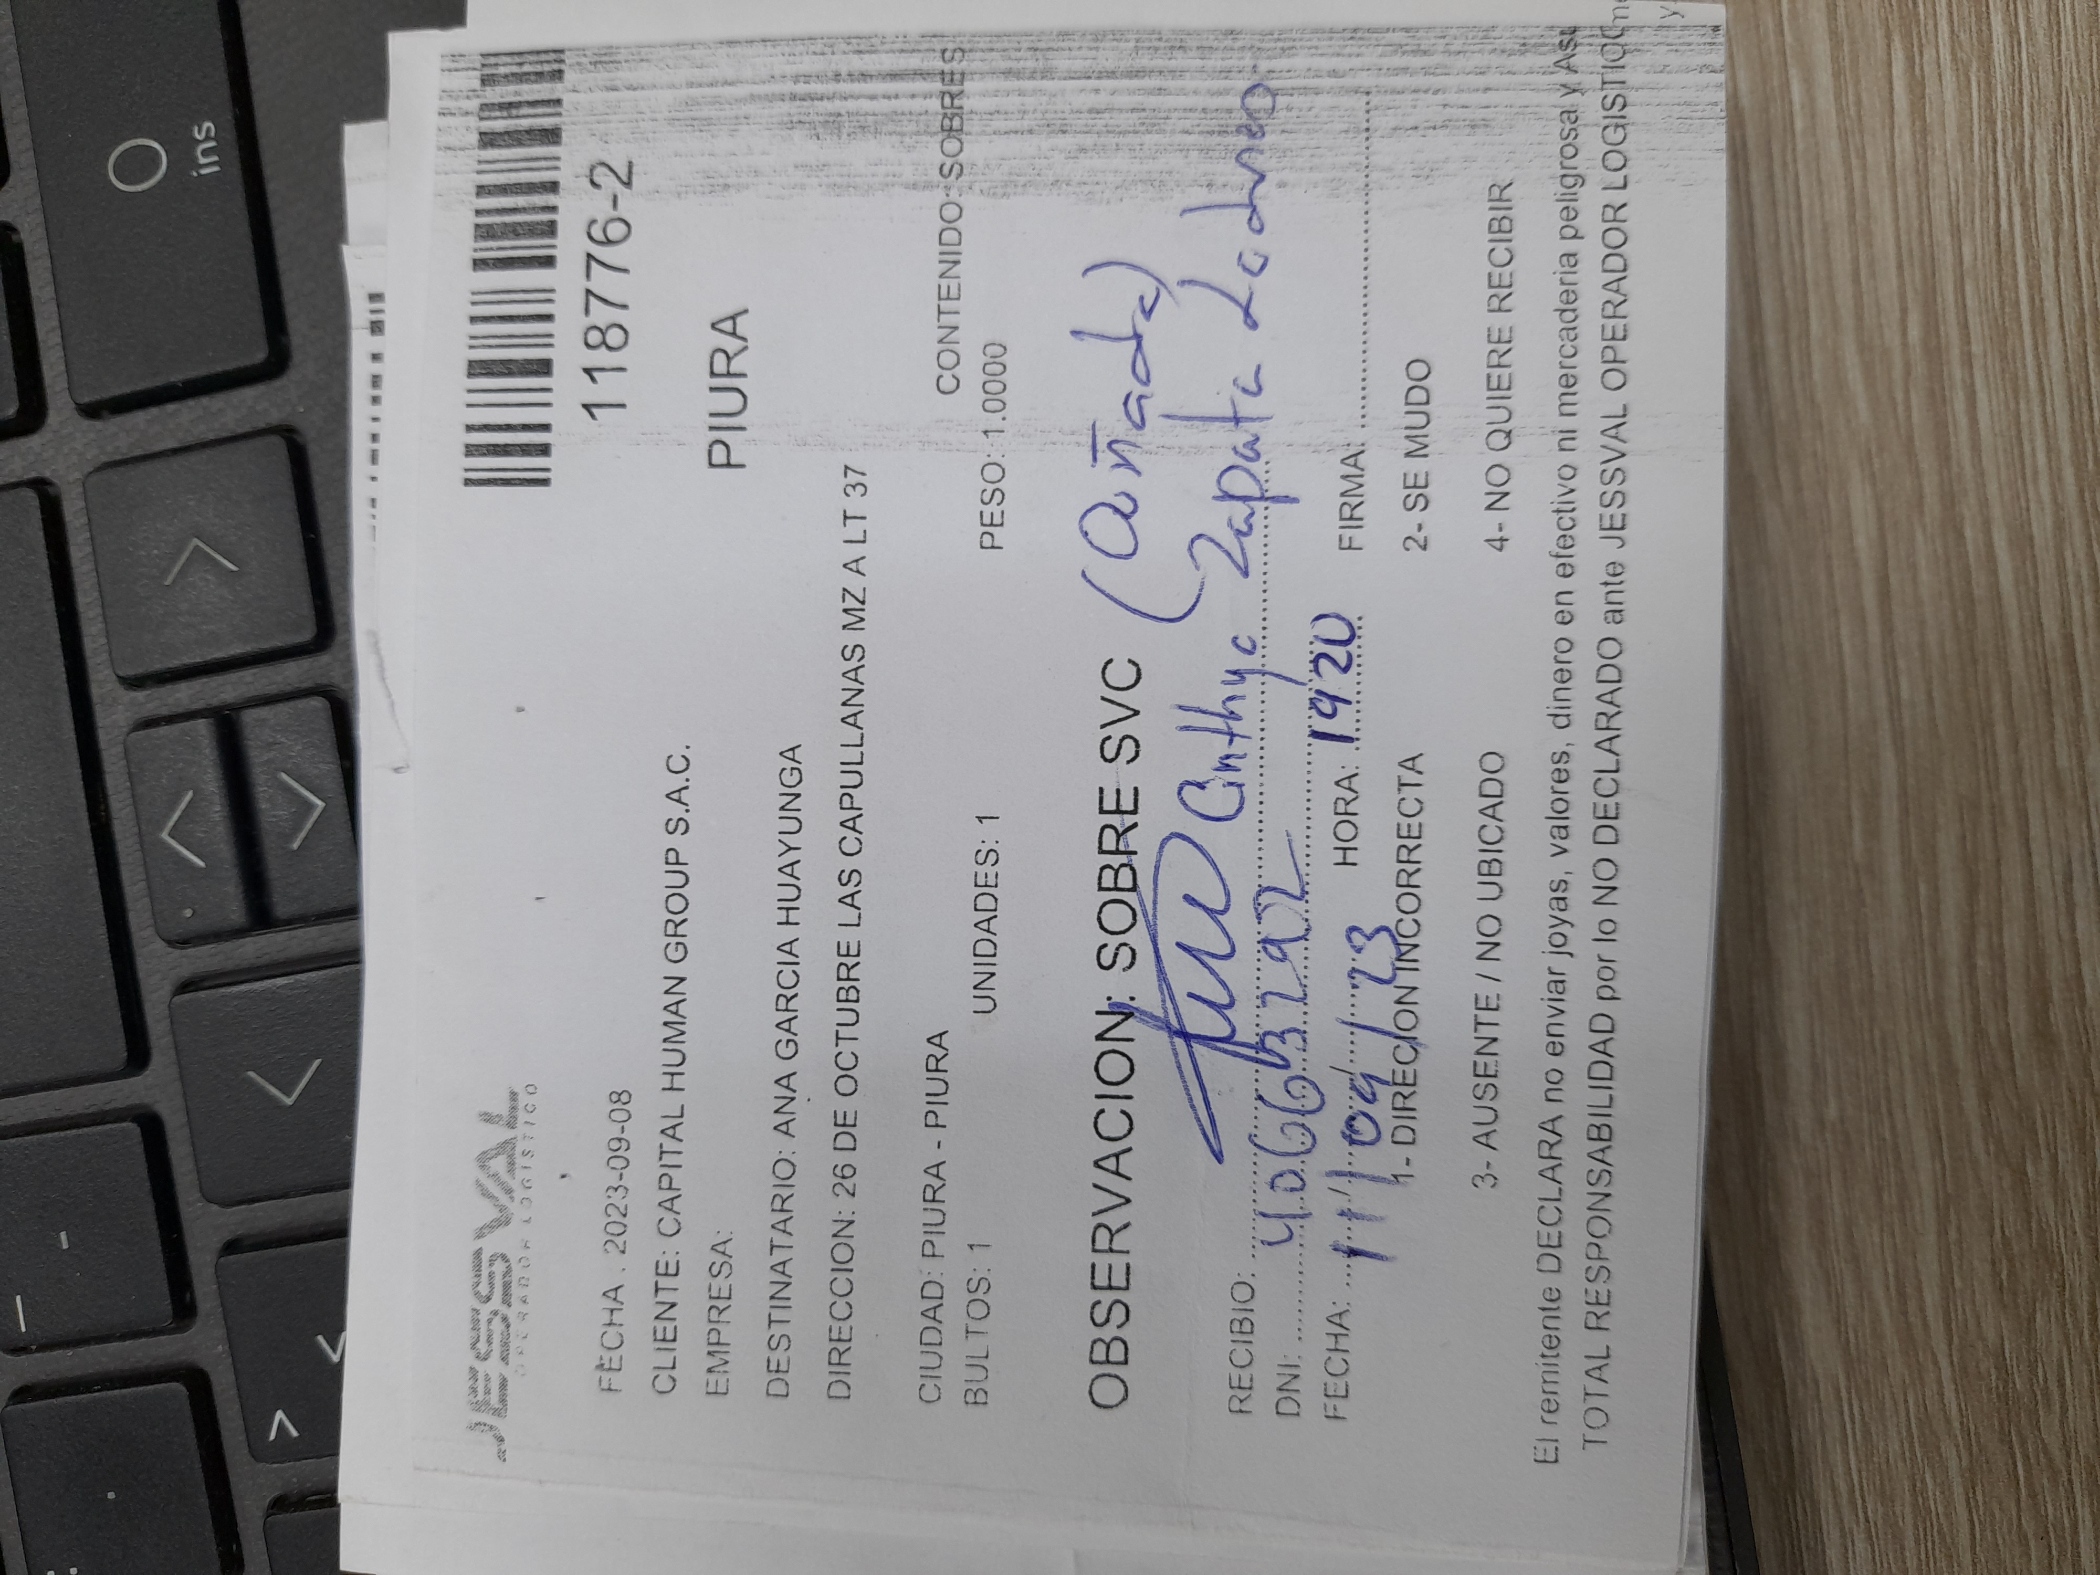 ins
JESSVAL
OPERADOR LOGISTICO
118776-2
FECHA . 2023-09-08
CLIENTE: CAPITAL HUMAN GROUP S.A.C.
EMPRESA:
PIURA
DESTINATARIO: ANA GARCIA HUAYUNGA
DIRECCION: 26 DE OCTUBRE LAS CAPULLANAS MZ A LT 37
CIUDAD: PIURA - PIURA
CONTENIDO: SOBRES
BULTOS: 1 UNIDADES: 1 PESO: 1.0000
OBSERVACION: SOBRE SVC (Cuñada)
RECIBIO: Cinthya Zapata
DNI: 40663292
FECHA: 11/09/23 HORA: 1920 FIRMA:
1- DIRECION INCORRECTA 2- SE MUDO
3- AUSENTE / NO UBICADO 4- NO QUIERE RECIBIR
El remitente DECLARA no enviar joyas, valores, dinero en efectivo ni mercaderia peligrosa y
TOTAL RESPONSABILIDAD por lo NO DECLARADO ante JESSVAL OPERADOR LOGISTICO